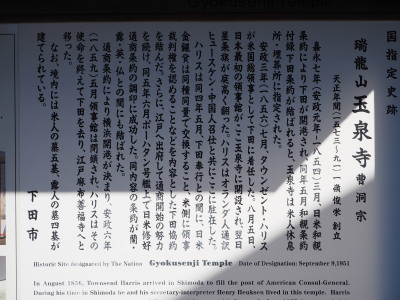 国指定史跡
瑞龍山 玉泉寺 曹洞宗
天正年間(一五七三~九一)一嶺俊栄 創立
嘉永七年(安政元年・一八五四)三月、日米和親
条約により下田が開港され、同年五月和親条約
付録下田条約が結ばれると、玉泉寺は米人休息
所・埋葬所に指定された。
安政三年(一八五六)七月、タウンゼント・ハリス
が米国総領事として下田に着任した。八月五日、
日本最初の領事館がここ玉泉寺に開設され、翌日
星条旗が庭先に翻った。ハリスはオランダ人通訳
ヒュースケン・中国人召仕と共にここに駐在した。
ハリスは同四年五月、下田奉行との間に、日米
金銀貨は同種同量で交換すること、米側に領事
裁判権を認めることなどを内容とした下田協約
を結んだ。さらに、江戸へ出府して通商開始の努力
を続け、同五年六月ポーハタン号艦上で日米修好
通商条約の調印に成功した。同内容の条約が蘭・
露・英・仏との間にも結ばれた。
通商条約により横浜開港が決まり、安政六年
(一八五九)五月領事館は閉鎖され、ハリスはその
使命を終えて下田を去り、江戸麻布善福寺へと
移った。
なお、境内には米人の墓五基、露人の墓四基が
建てられている。
下田市
Historic Site designated by The Nation Gyokusenji Temple Date of Designation: September 9,1951
In August 1856, Townsend Harris arrived in Shimoda to fill the post of American Consul-General.
During his time in Shimoda he and his secretary-interpreter Henry Heusken lived in this temple. Harris